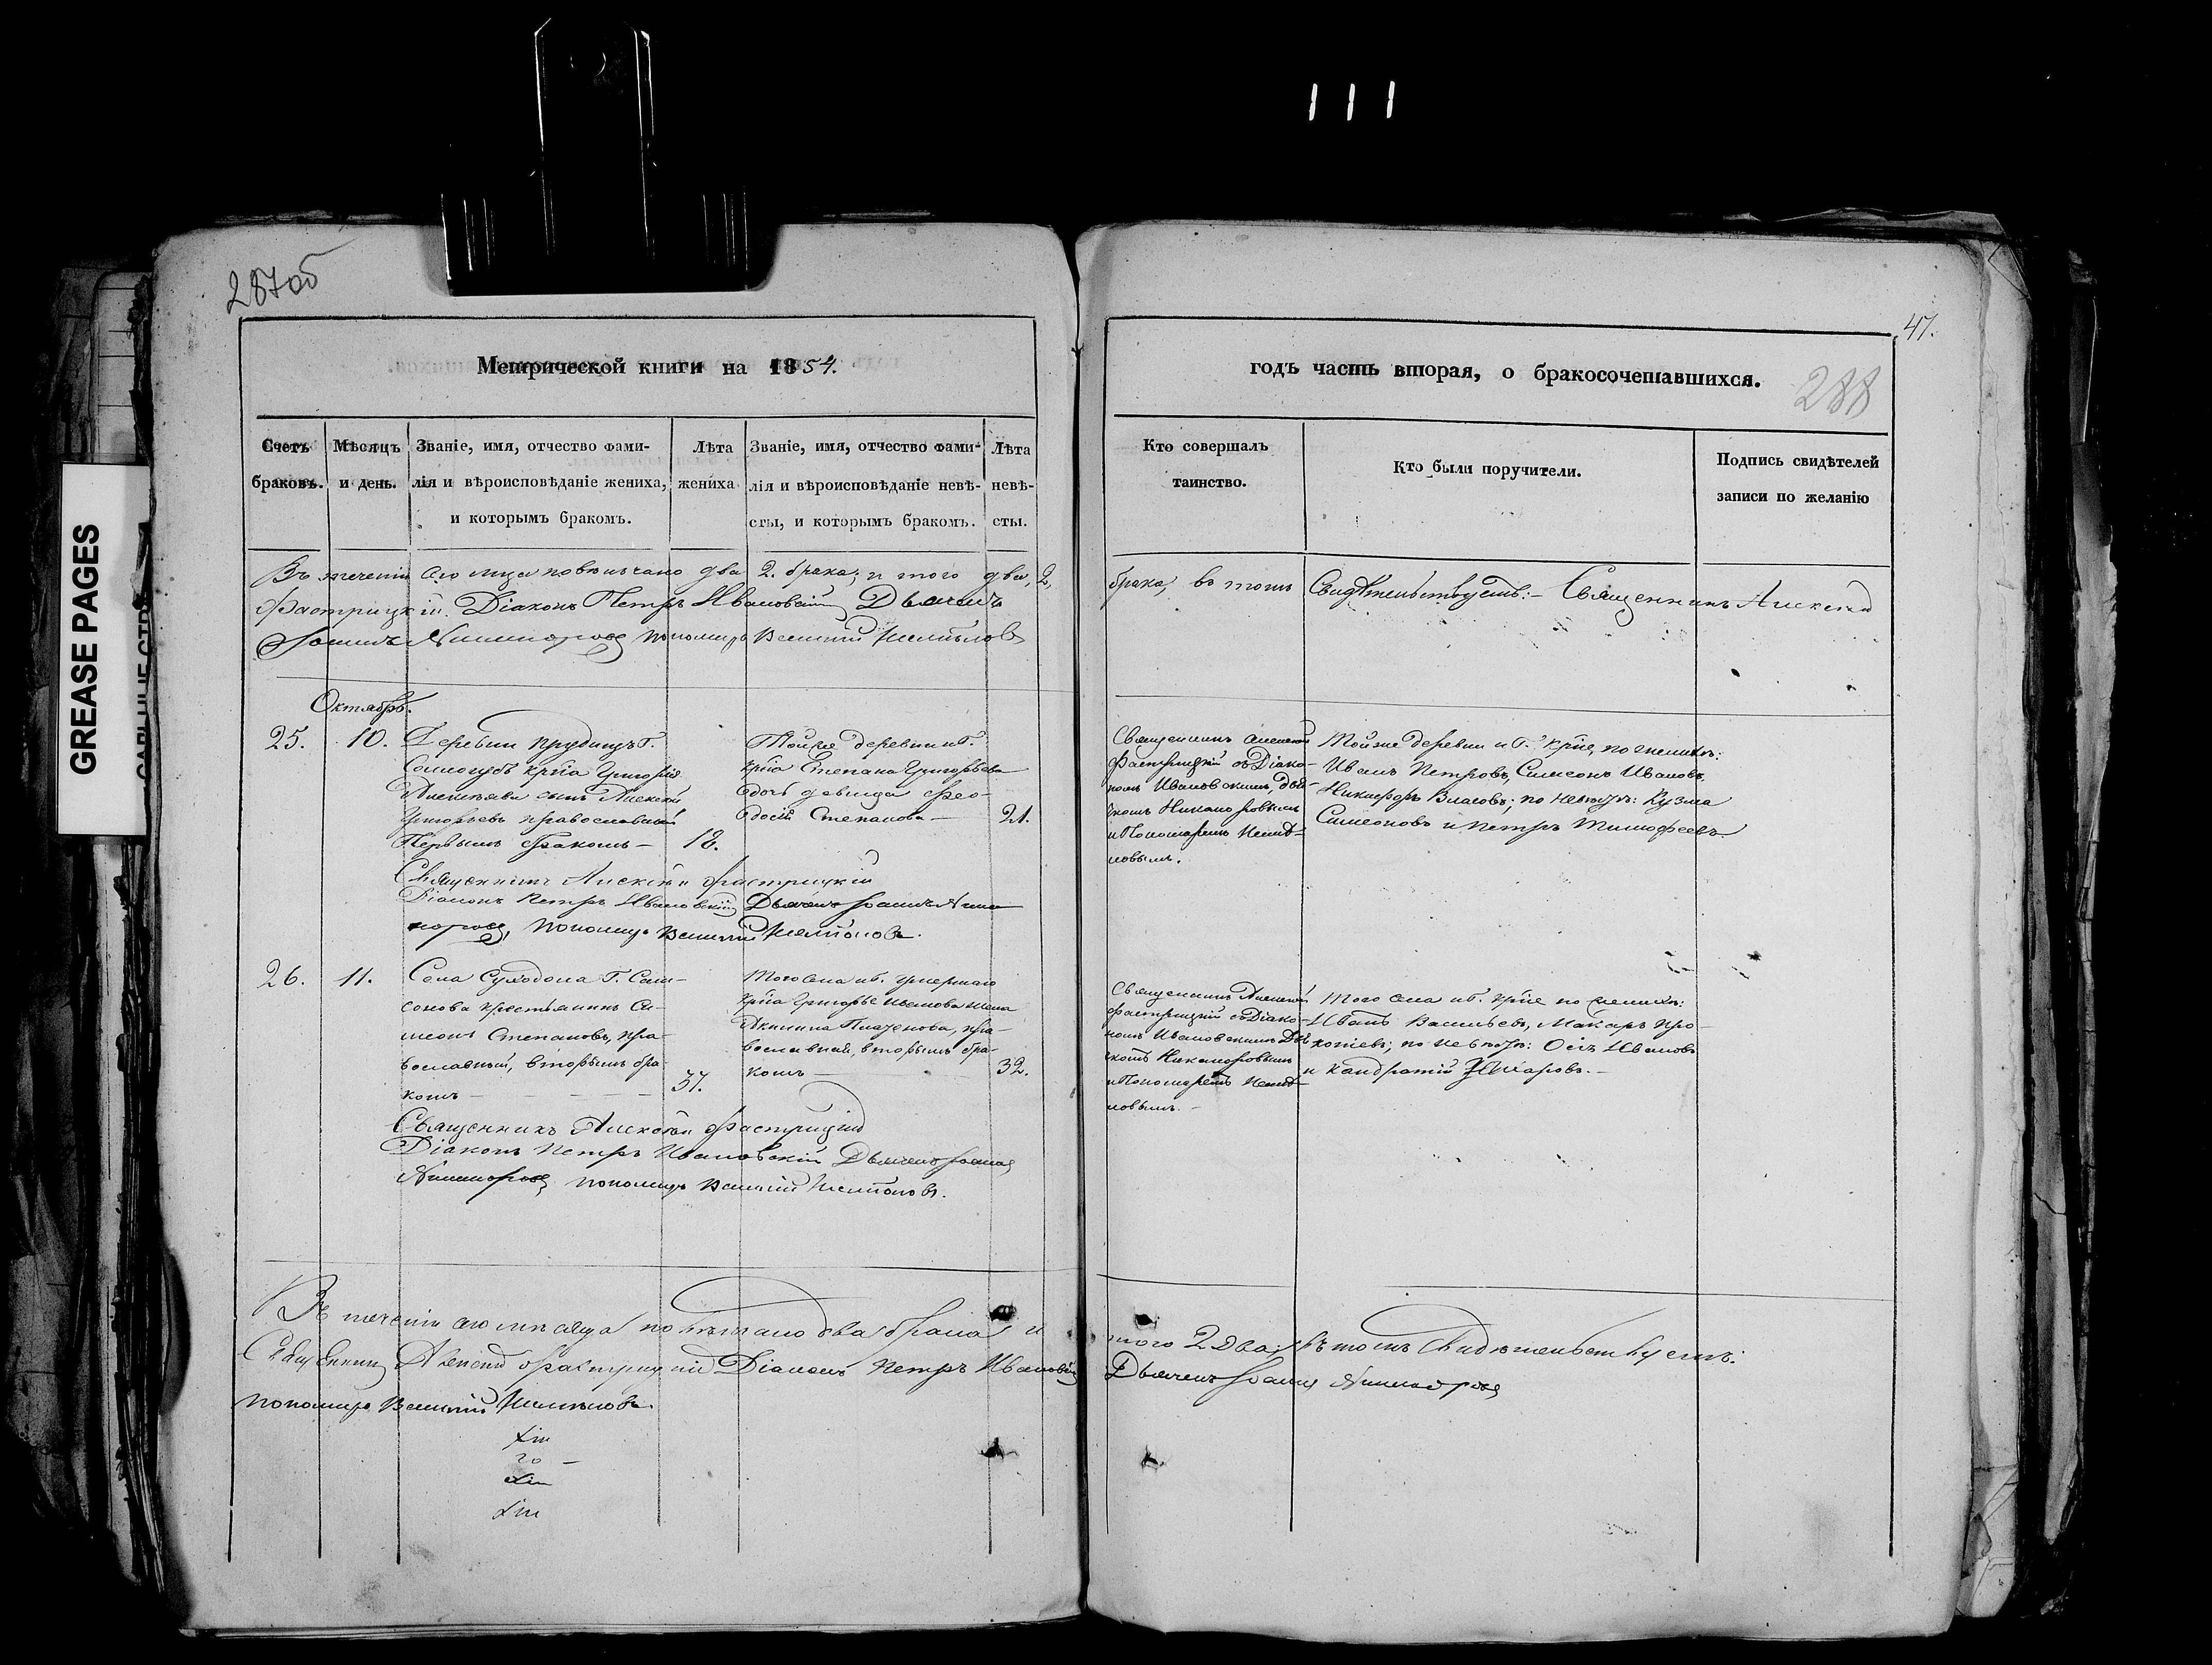 GREASE PAGES
287об
47.
288
Метрической книги на 1854.
годъ часть вторая, о бракосочетавшихся.
Счетъ браковъ.
Мѣсяцъ и день.
Званіе, имя, отчество фами-
лія и вѣроисповѣданіе жениха,
и которымъ бракомъ.
Лѣта
жениха
Званіе, имя, отчество фами-
лія и вѣроисповѣданіе невѣ-
сты, и которымъ бракомъ.
Лѣта
невѣ-
сты.
Кто совершалъ
таинство.
Кто были поручители.
Подпись свидѣтелей
записи по желанію
Въ теченіи сего мца повѣнчано два 2. брака; и того два, 2,
брака, въ томъ Свидѣтельствуетъ:- Священникъ Алексій
Фастрицкій Діаконъ Петръ Ивановскій Дьячекъ
Іоаннъ Никаноровъ пономарь Василій
Октябрь.
25.
10.
Деревни Прудищъ Г.
Сологубъ крна Григорія
сынъ Алексѣй
Григорьевъ православный
Первымъ бракомъ –
18.
Тойже деревни и Г.
крна Степана Григорьева
дочь девица Фео-
досія Степанова –
21.
Священникъ Алексѣй
Фастрицкій съ Діако-
номъ Ивановскимъ, дья-
чкомъ Никаноровымъ
и Пономаремъ
Тойже деревни и Г. крне, по женихѣ:
Иванъ Петровъ, Симеонъ Ивановъ,
Никифоръ Власовъ; по невѣстѣ: Кузма
Симеоновъ и Петръ Тимофеевъ
Священникъ Алексѣй Фастрицкій
Діаконъ Петръ Ивановскій Дьячекъ Іоаннъ Ника
норовъ, Пономарь Василій
26.
11.
Села Суходола Г. Сам-
сонова крестьянинъ Си-
меонъ Степановъ, пра-
вославный, вторымъ бра-
комъ – – – –
37.
Того села и Г. умершаго
крна Григорья Иванова жена
Акилина Платонова, пра-
вославная, вторымъ бра-
комъ –
32.
Священникъ Алексѣй
Фастрицкій съ Діако-
номъ Ивановскимъ Дья-
чкомъ Никаноровымъ
и Пономаремъ
Того села и Г. крне по женихѣ:
Иванъ Васильевъ, Макаръ Про-
копіевъ; по невѣстѣ: Осипъ Ивановъ
и Кандратій
Священникъ Алексѣй Фастрицкій
Діаконъ Петръ Ивановскій Дьячекъ Іоаннъ
Никаноровъ пономарь Василій
Въ теченіи сего мѣсяца повѣнчано два брака и
того 2 два; въ томъ Свидѣтельствуетъ:
Священникъ Алексій Фастрицкій Діаконъ Петръ Ивановскій
Дьячекъ Іоаннъ Никаноровъ
пономарь Василій